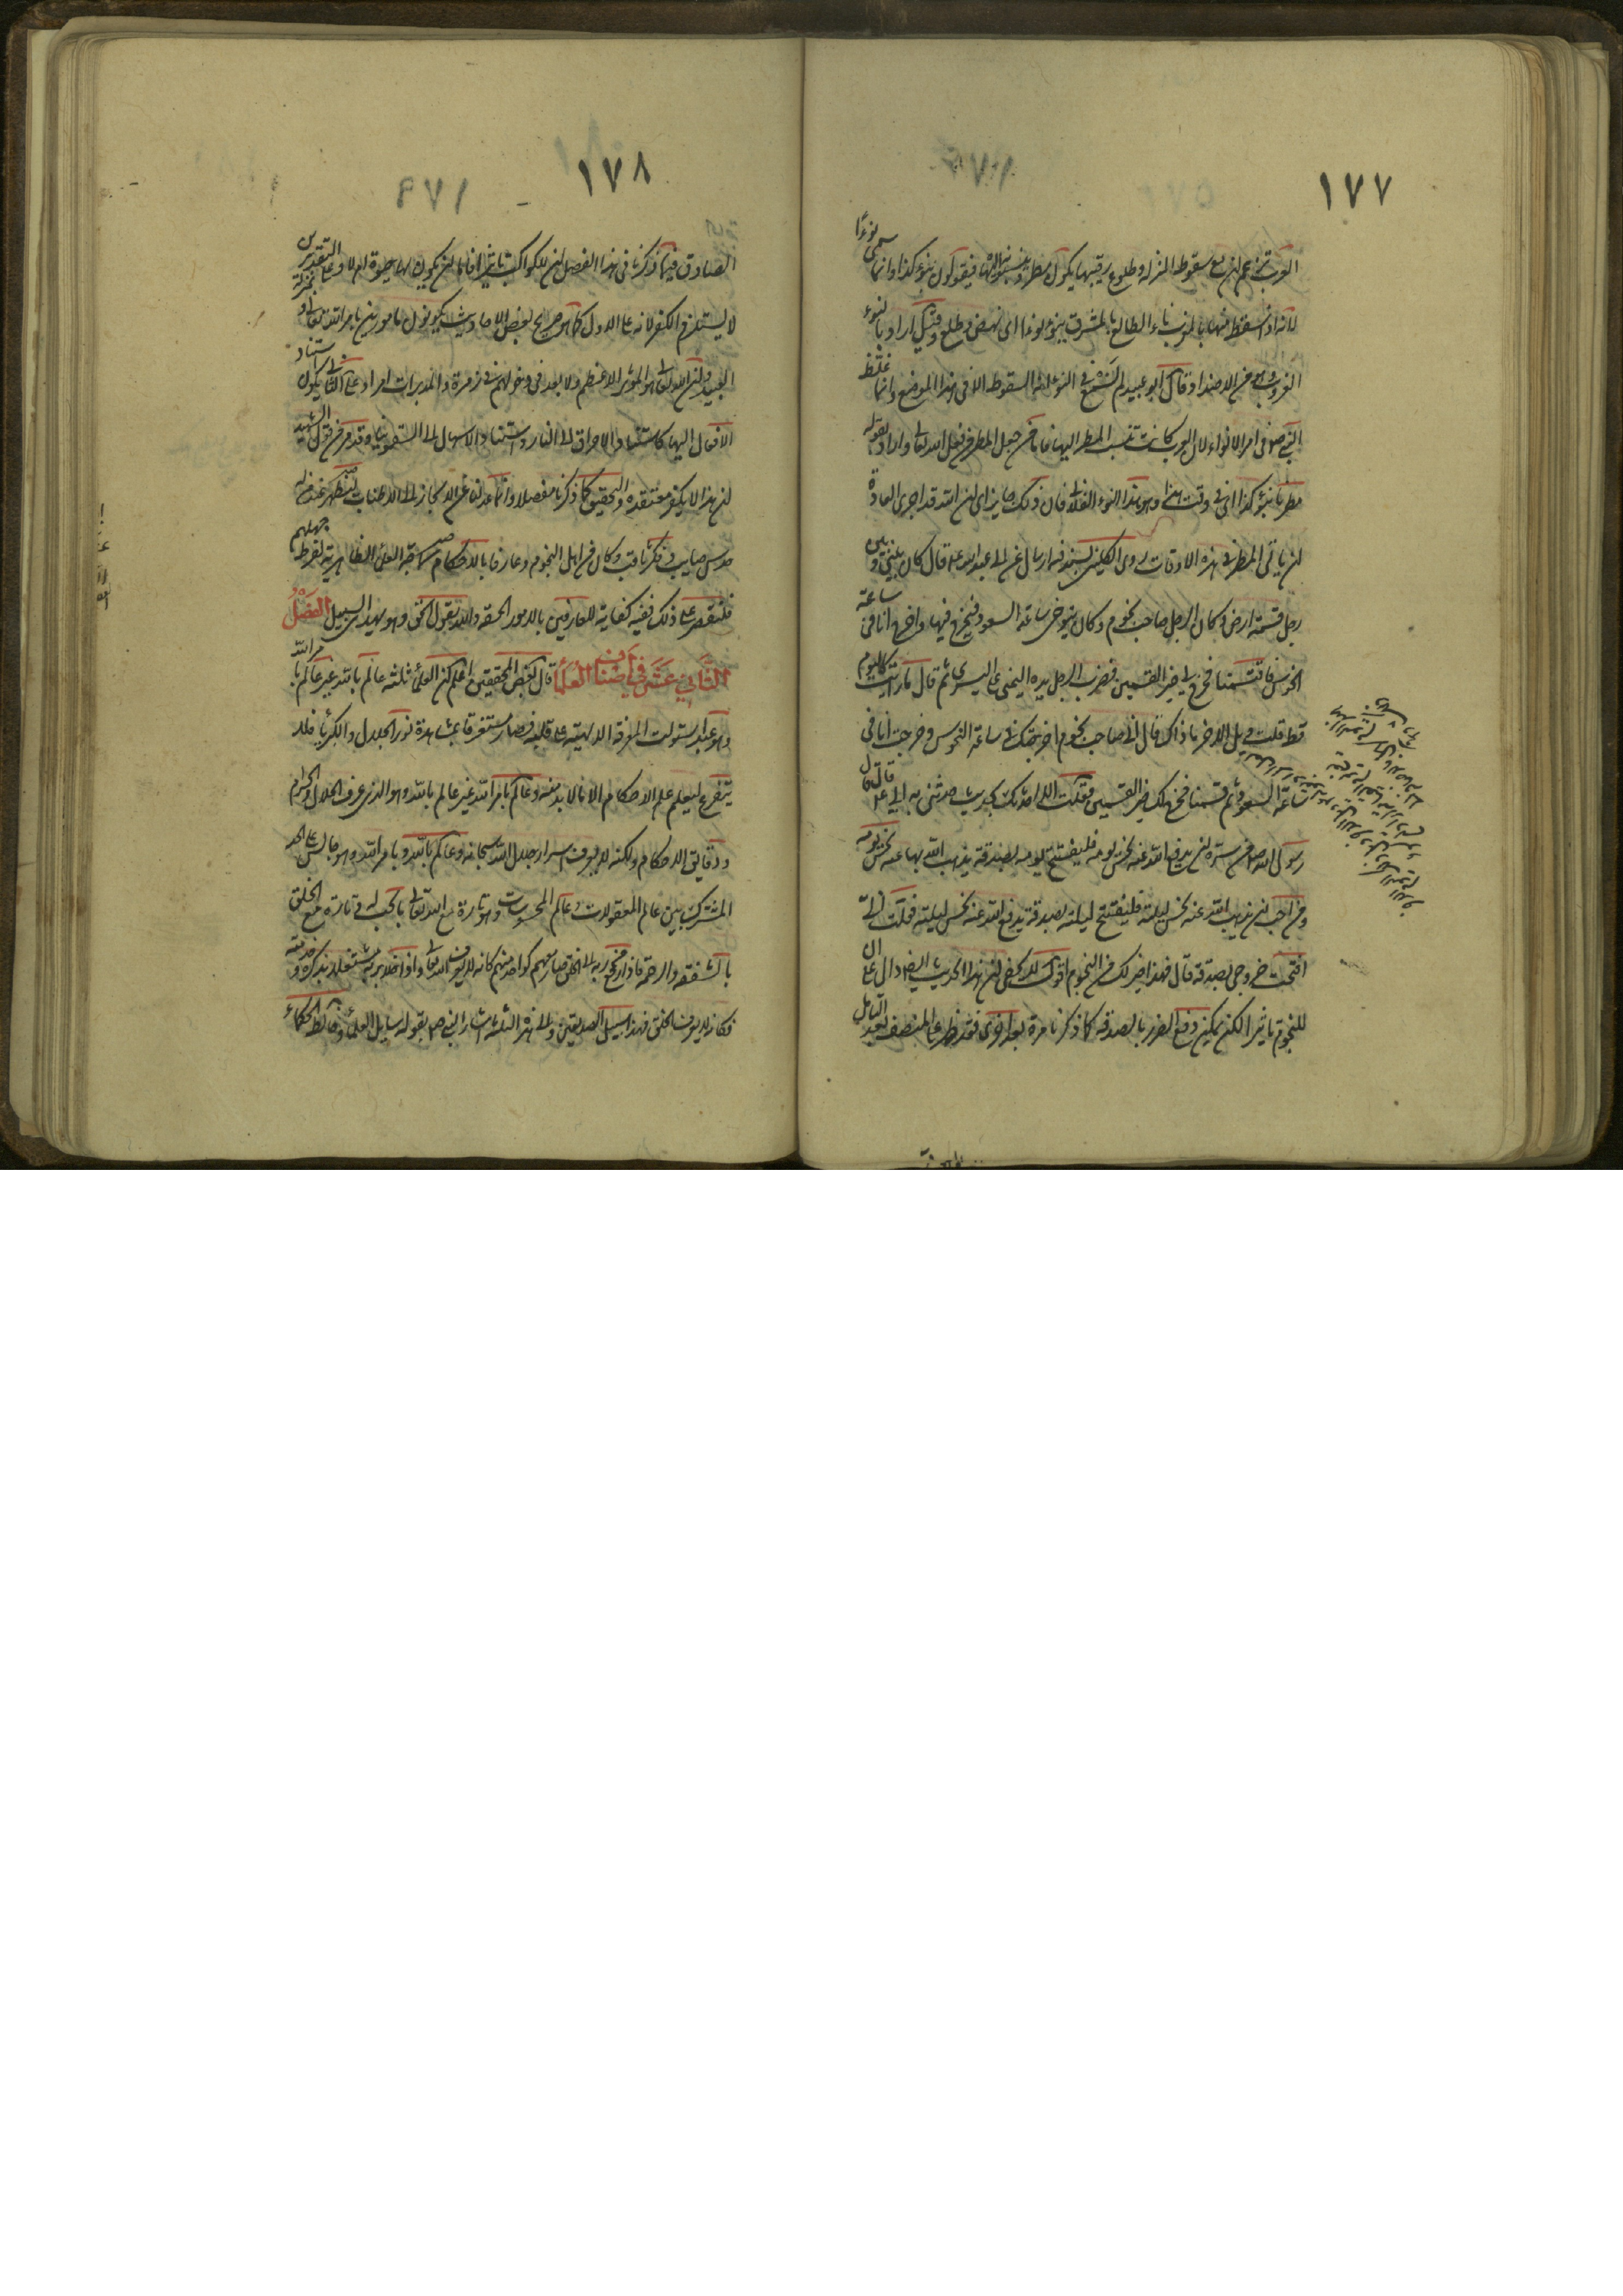 ١٧٧
العرب تزعم ان مع سقوط المنزلة وطلوع رقيبها يكون مطر وينسبونه اليها فيقولون بنوء كذا وانما سمى نوءًا
لانه اذا سقط منها بالمغرب ناء الطالع بالمشرق ينوء نوءا اى نهض وطلع وقيل اراد بالنوء
الغروب وهو من الاضداد وقال ابو عبيد لم نسمع فى النوء انه السقوط الا فى هذا الموضع وانما غلظ
النبى ص فى امر الانواء لان العرب كانت تنسب المطر اليها فاما من جعل المطر من فعل الله تعالى واراد بقوله
مطرنا بنوء كذا اى فى وقت هذا وهو هذا النوء الفلانى فان ذلك جايز اى ان الله قد اجرى العادة
ان ياتى المطر فى هذه الاوقات روى الكلينى بسند فيه ارسال عن ابى عبد الله ع قال كان بينى وبين
رجل قسمة ارض وكان الرجل صاحب نجوم وكان يتوخى ساعة السعود فيخرج فيها واخرج انا فى ساعة
النحوس فاقتسمنا فخرج لى خير القسمين فضرب الرجل يده اليمنى على اليسرى ثم قال ما رايت كاليوم
قط قلت ويل الاخر ما ذاك قال انى صاحب نجوم اخرجتك فى ساعة النحوس وخرجت انا فى
ساعة السعود ثم قسمنا فخرج لك خير القسمين فقلت الا احدثك بحديث حدثنى به ابى ع قال قال
رسول الله ص من سره ان يدفع الله عنه نحس يومه فليفتتح يومه بصدقة يذهب الله بها عنه نحس يومه
ومن احب ان يذهب الله عنه نحس ليلته فليفتتح ليلته بصدقة يدفع الله عنه نحس ليلته فقلت انى
افتتحت خروجى بصدقة قال فهذا خير لك من النجوم اقول لا يخفى ان هذا الحديث ايضا دال على ان
للنجوم تاثيرا لكن يمكن دفع الضرر بالصدقة كما ذكرنا مرة بعد اخرى فقد ظهر على المنصف بعد التامل
١٧٨
الصادق فيما ذكرنا فى هذا الفصل ان للكواكب تاثيرا فاما ان يكون لها حيوة ام لا وعلى التقديرين
لا يستلزم الكفر لانه على الاول كما هو صريح بعض الاحاديث يكونون مامورين بامر الله تعالى بمنزلة
العبيد وان الله تعالى هو المؤثر الاعظم ولا بعد فى دخولهم فى زمرة والمدبرات امرا وعلى الثانى يكون استناد
الافعال اليها كاستناد الاحراق الى النار واستناد الاسهال الى السقمونيا وقد مر من قول الشهيد
ان هذا لا يكفر معتقده والتحقيق كما ذكرنا مفصلا وانما عدلنا عن الايجاز الى الاطناب ليظهر عند من له
حدس صايب وفكر ثاقب وكان من اهل النجوم وعارفا بالاحكام العلماء الظاهرية لفرط جهلهم
فلنقصر على ذلك ففيه كفاية للعارفين بالامور الحقة والله يقول الحق وهو يهدى السبيل الفصل
الثانى عشر فى اصناف العلماء قال بعض المحققين اعلم ان العلماء ثلثة عالم بالله غير عالم بامر الله
وهو عبد استولت المعرفة الالهية على قلبه فصار مستغرقا بمشاهدة نور الجلال والكبرياء فلا
يتفرغ لتعلم علم الاحكام الا ما لا بد منه وعالم بامر الله غير عالم بالله وهو الذى عرف الحلال والحرام
ودقايق الاحكام ولكنه لا يعرف اسرار جلال الله سبحانه وعالم بالله وبامر الله وهو جالس على الحد
المشترك بين عالم المعقولات وعالم المحسوسات وهو تارة مع الله تعالى بالحب له وتارة مع الخلق
بالشفقة والرحمة فاذا رجع من ربه الى الخلق صار معهم كواحد منهم كانه لا يعرف الله تعالى واذا خلا بربه مشتغلا بذكره وخدمته
فكانه لا يعرف الخلق فهذا سبيل الصديقين والى هذه الثلثة اشار النبى ص بقوله سايل العلماء وخالط الحكماء